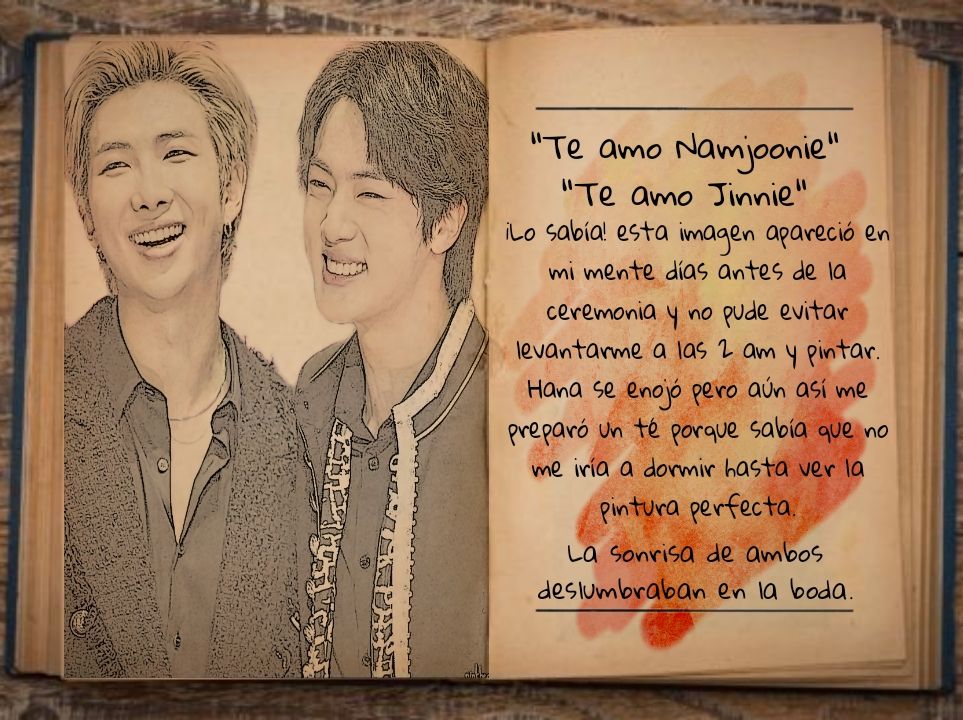 "Te amo Namjoonie"
"Te amo Jinnie"
¡Lo sabía! esta imagen apareció en
mi mente días antes de la
ceremonia y no pude evitar
levantarme a las 2 am y pintar.
Hana se enojó pero aún así me
preparó un té porque sabía que no
me iría a dormir hasta ver la
pintura perfecta.
La sonrisa de ambos
deslumbraban en la boda.